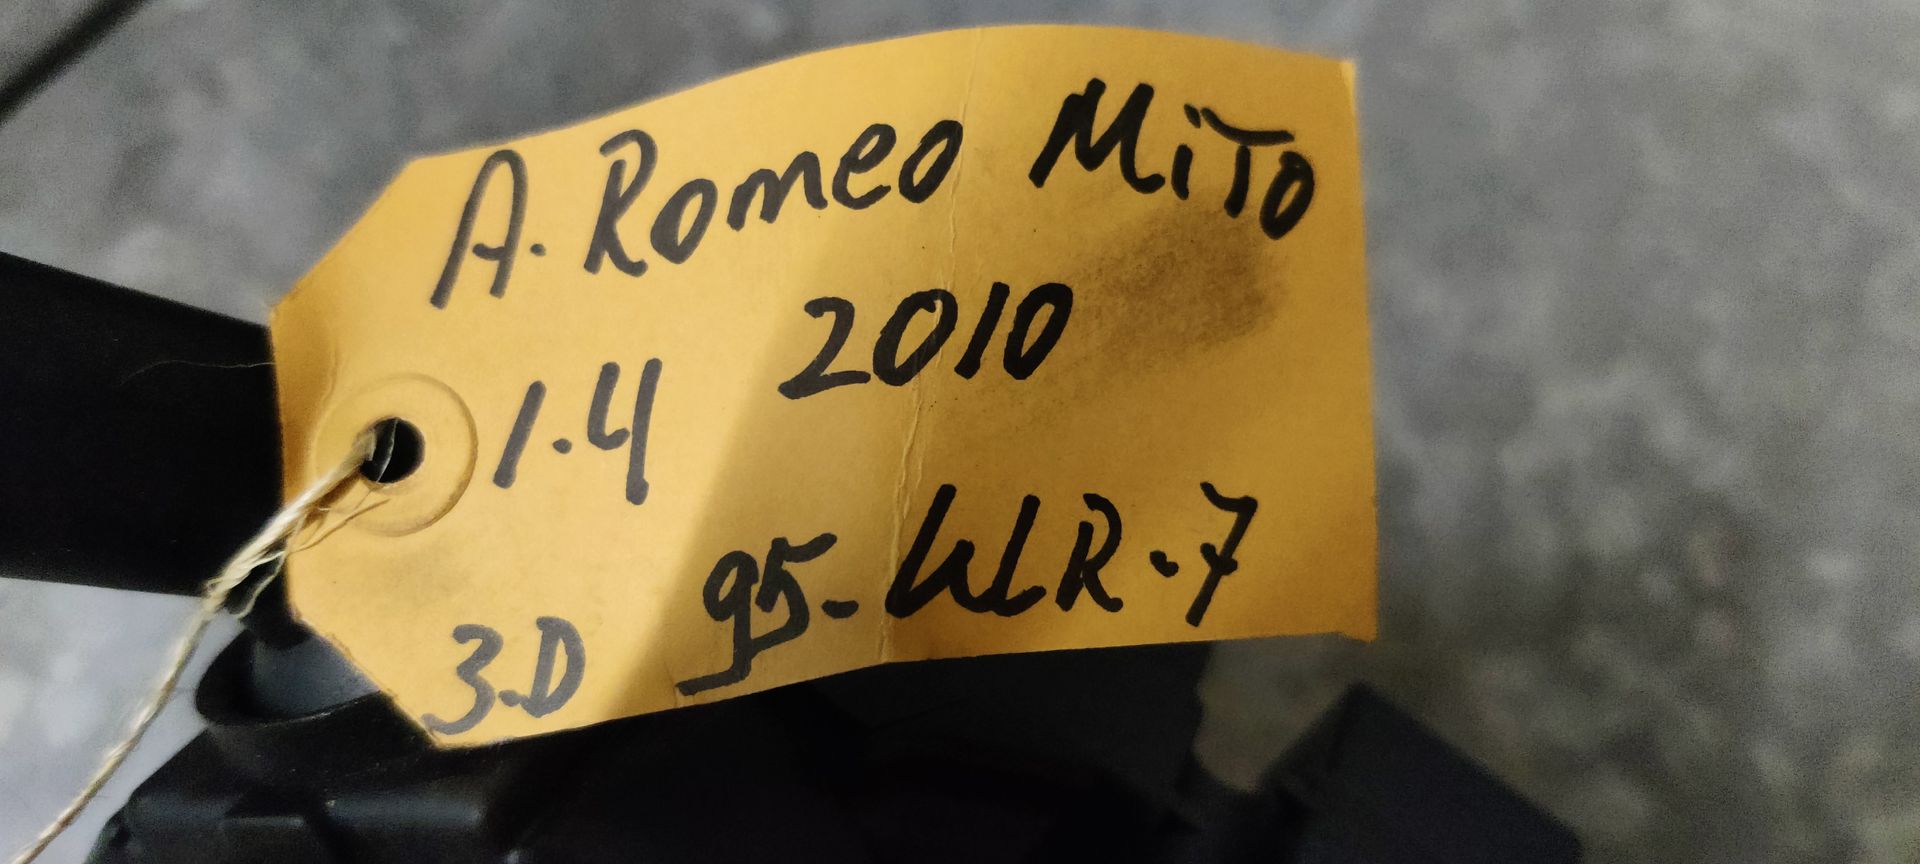 A. Romeo MiTo
1.4 2010
3.D 95-WLR.7